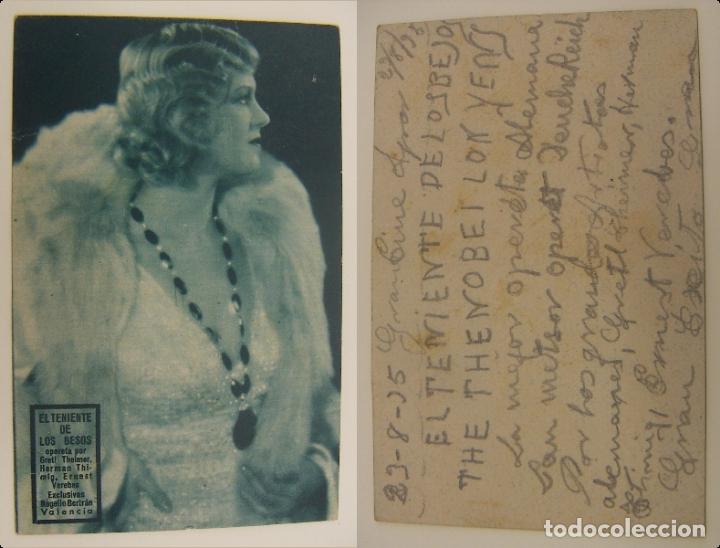 EL TENIENTE
DE
LOS BESOS
opereta por
Gretl Theimer,
Herman Thi-
mig, Ernest
Verebes
Exclusivas
Rogelio Bertrán
Valencia
23-8-35 Gran Cine
EL TENIENTE DE LOS BESOS
THE THENOBEI LON YENS
La mejor opereta Alemana
San metsor operett Deuche Reich
Por los grandes Artistas
alemanes, Gretl Theimer, Herman
Thimig y Ernest Verebes.
Gran Exsito
todocoleccion